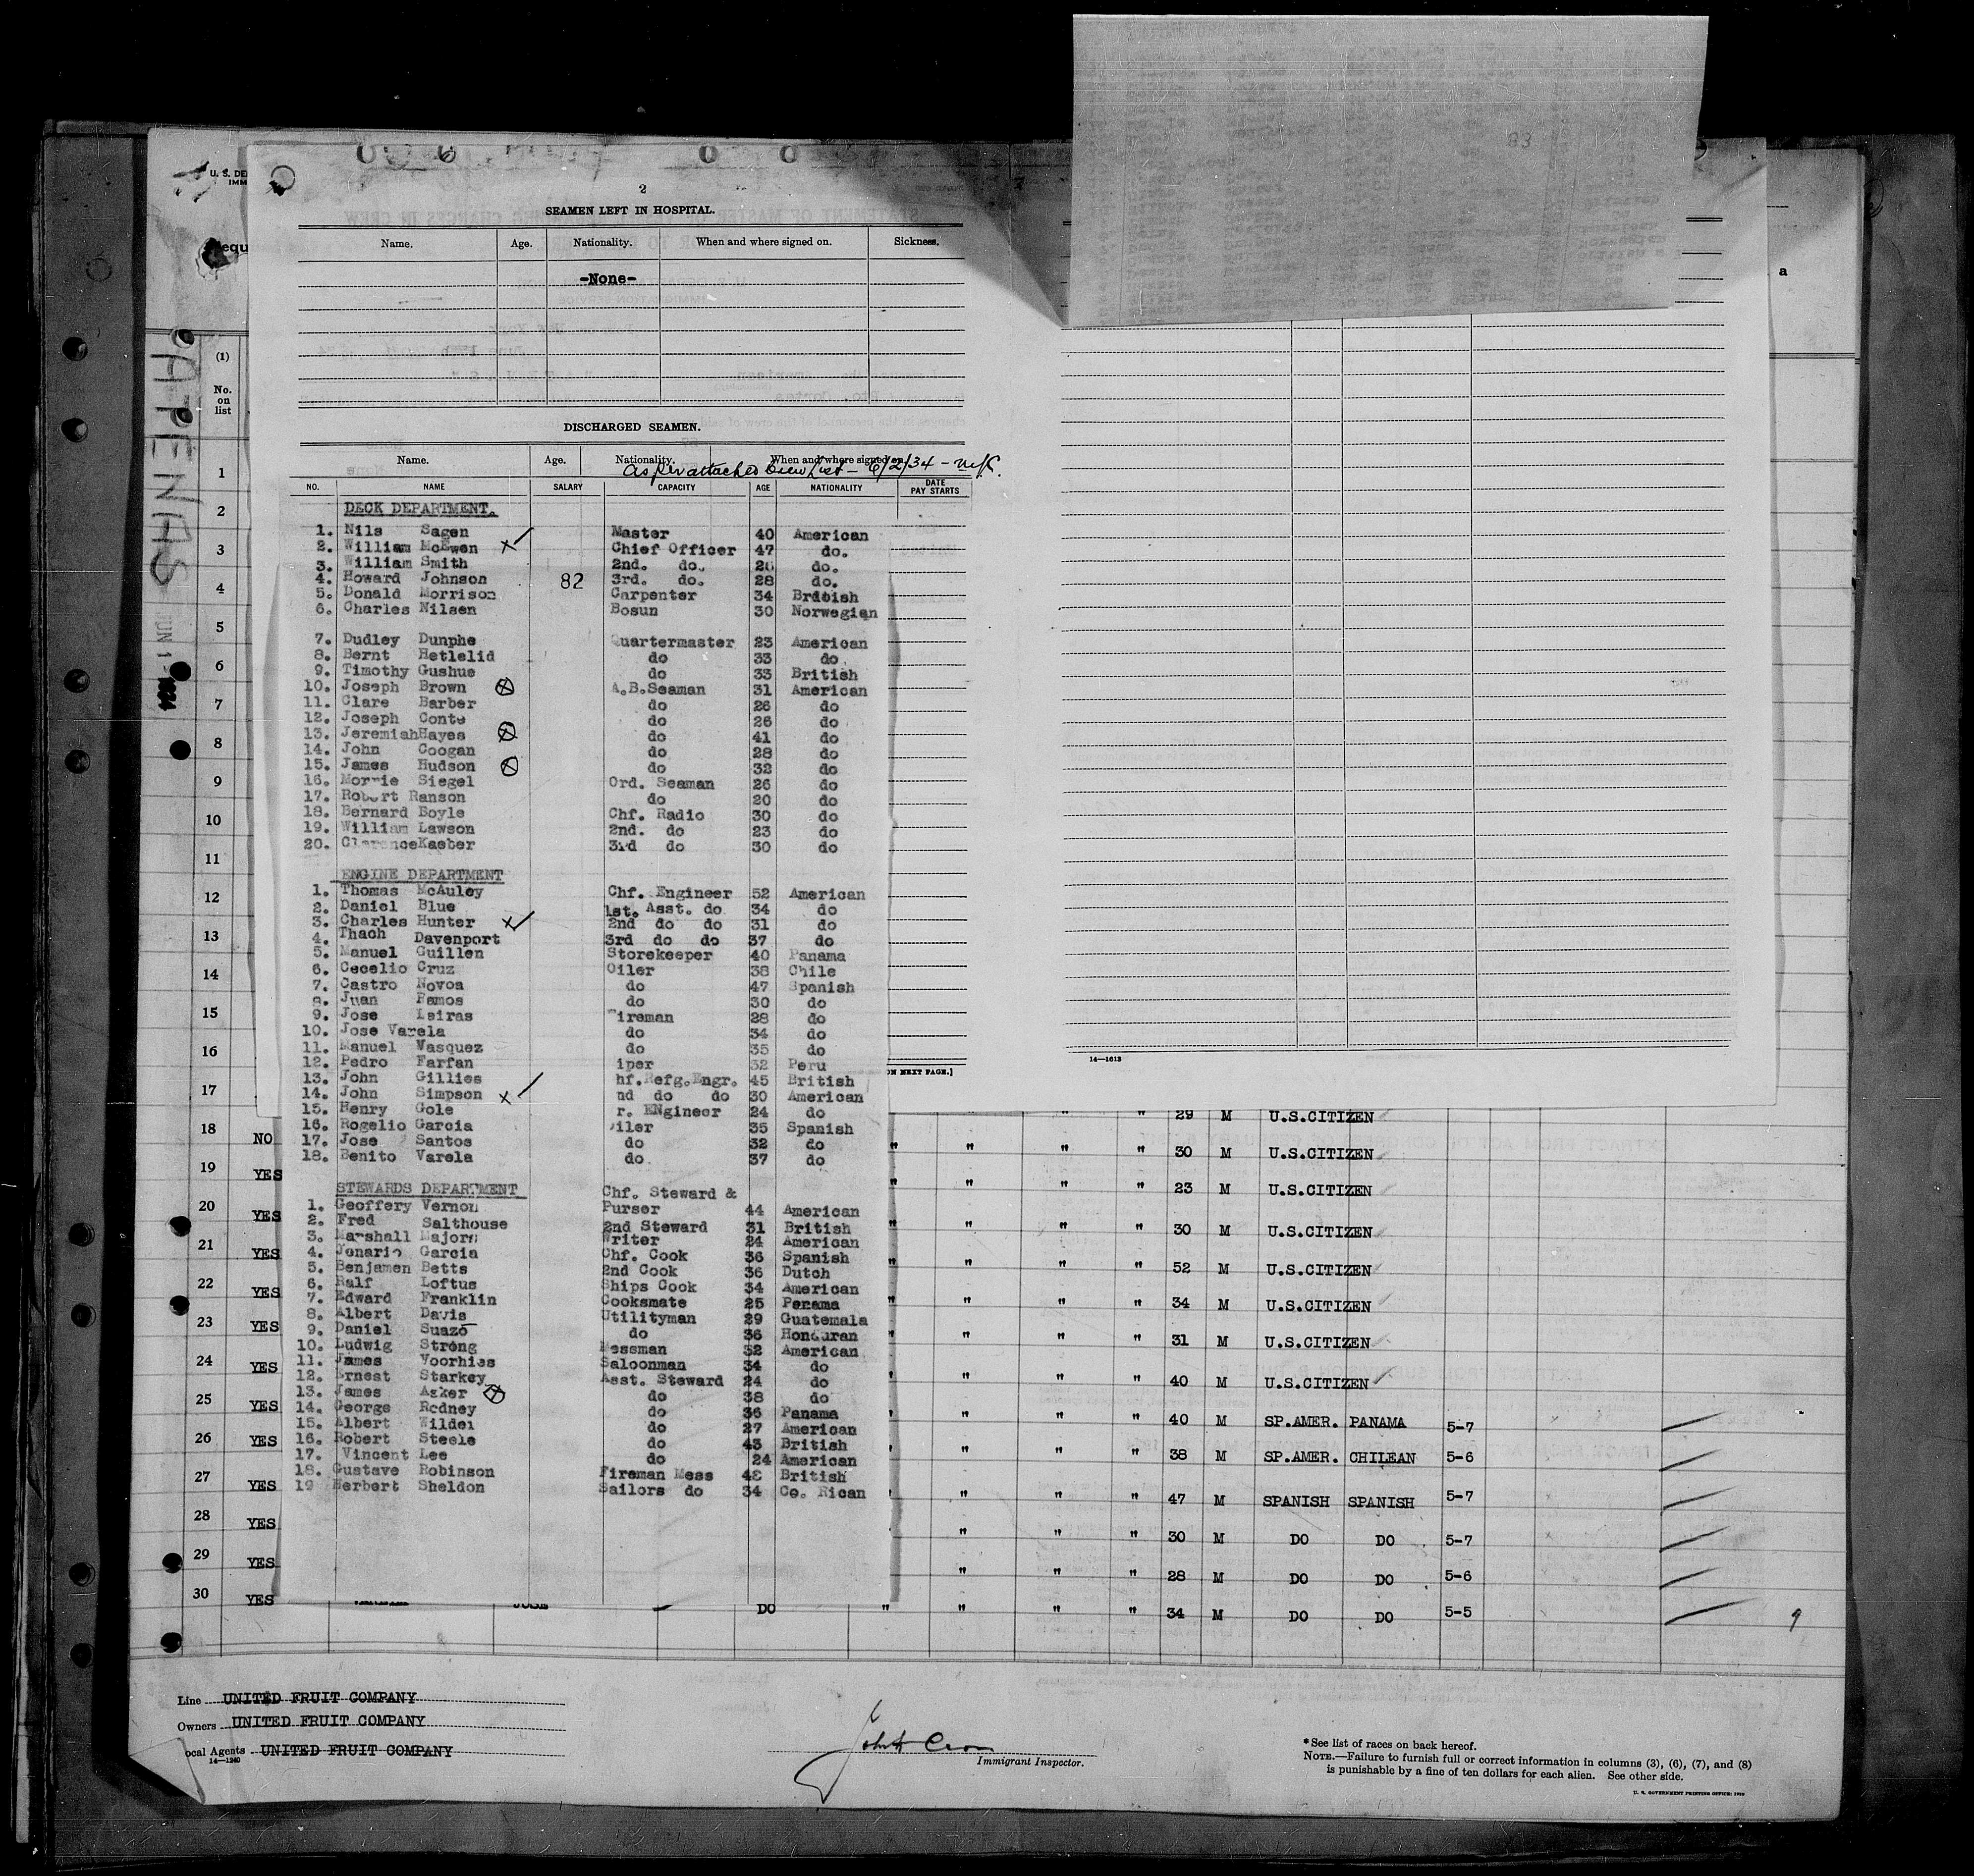 83
U. S. DE
IMM
equ
a
2
SEAMEN LEFT IN HOSPITAL.
Name. Age. Nationality. When and where signed on. Sickness.
-None-
DISCHARGED SEAMEN.
Name. Age. Nationality. When and where signed on.
as per attached Crew List - 6/2/34
NO. NAME SALARY CAPACITY AGE NATIONALITY DATE PAY STARTS
DECK DEPARTMENT.
1. Nils Sagen Master 40 American
2. William McEwen x Chief Officer 47 do.
3. William Smith 2nd. do. do.
4. Howard Johnson 82 3rd. do. 28 do.
5. Donald Morrison Carpenter 34 British
6. Charles Nilsen Bosun 30 Norwegian
7. Dudley Dunphe Quartermaster 23 American
8. Bernt Hetlelid do 33 do.
9. Timothy Gushue do 33 British
10. Joseph Brown A.B.Seaman 31 American
11. Clare Barber do 26 do
12. Joseph Conte do 26 do
13. JeremiahHayes do 41 do
14. John Coogan do 28 do
15. James Hudson do 32 do
16. Morrie Siegel Ord. Seaman 26 do
17. Robert Ranson do 20 do
18. Bernard Boyle Chf. Radio 30 do
19. William Lawson 2nd. do 23 do
20. ClarenceKaeber 3rd do 30 do
ENGINE DEPARTMENT
1. Thomas McAuley Chf. Engineer 52 American
2. Daniel Blue 1st. Asst. do 34 do
3. Charles Hunter x 2nd do do 31 do
4. Thach Davenport 3rd do do 37 do
5. Manuel Guillen Storekeeper 40 Panama
6. Cecelio Cruz Oiler 38 Chile
7. Castro Novoa do 47 Spanish
8. Juan Ramos do 30 do
9. Jose Leiras ireman 28 do
10. Jose Varela do 34 do
11. Manuel Vasquez do 35 do
12. Pedro Farfan iper 32 Peru
13. John Gillies hf.Refg.Engr. 45 British
14. John Simpson x nd do do 30 American
15. Henry Gole r. ENgineer 24 do
16. Rogelio Garcia iler 35 Spanish
17. Jose Santos do 32 do
18. Benito Varela do 37 do
STEWARDS DEPARTMENT Chf. Steward &
1. Geoffery Vernon Purser 44 American
2. Fred Salthouse 2nd Steward 31 British
3. Marshall Majors Writer 24 American
4. Jenario Garcia Chf. Cook 36 Spanish
5. Benjamen Betts 2nd Cook 36 Dutch
6. Ralf Loftus Ships Cook 34 American
7. Edward Franklin Cooksmate 25 Panama
8. Albert Davis Utilityman 29 Guatemala
9. Daniel Suazo do 36 Honduran
10. Ludwig Strong Messman 32 American
11. James Voorhies Saloonman 34 do
12. Ernest Starkey Asst. Steward 24 do
13. James Asker do 38 do
14. George Rodney do 36 Panama
15. Albert Wilder do 27 American
16. Robert Steele do 43 British
17. Vincent Lee do 24 American
18. Gustave Robinson Fireman Mess 48 British
19 Herbert Sheldon Sailors do 34 Co. Rican
14—1613
ON NEXT PAGE.]
ATENAS
JUN 1 1934
(1)
No. on list
1
2
3
4
5
6
7
8
9
10
11
12
13
14
15
16
17 " " " 29 M U.S.CITIZEN
18 NO " " " " 30 M U.S.CITIZEN
19 YES " " " " 23 M U.S.CITIZEN
20 YES " " " " 30 M U.S.CITIZEN
21 YES " " " " 52 M U.S.CITIZEN
22 YES " " " " 34 M U.S.CITIZEN
23 YES " " " " 31 M U.S.CITIZEN
24 YES " " " " 40 M U.S.CITIZEN
25 YES " " " " 40 M SP.AMER. PANAMA 5-7
26 YES " " " " 38 M SP.AMER. CHILEAN 5-6
27 YES " " " " 47 M SPANISH SPANISH 5-7
28 YES " " " 30 M DO DO 5-7
29 YES " " " 28 M DO DO 5-6
30 YES JOSE DO " " " " 34 M DO DO 5-5
9
Line UNITED FRUIT COMPANY
Owners UNITED FRUIT COMPANY
ocal Agents UNITED FRUIT COMPANY
14—1240
Immigrant Inspector.
*See list of races on back hereof.
NOTE.—Failure to furnish full or correct information in columns (3), (6), (7), and (8)
is punishable by a fine of ten dollars for each alien. See other side.
U. S. GOVERNMENT PRINTING OFFICE: